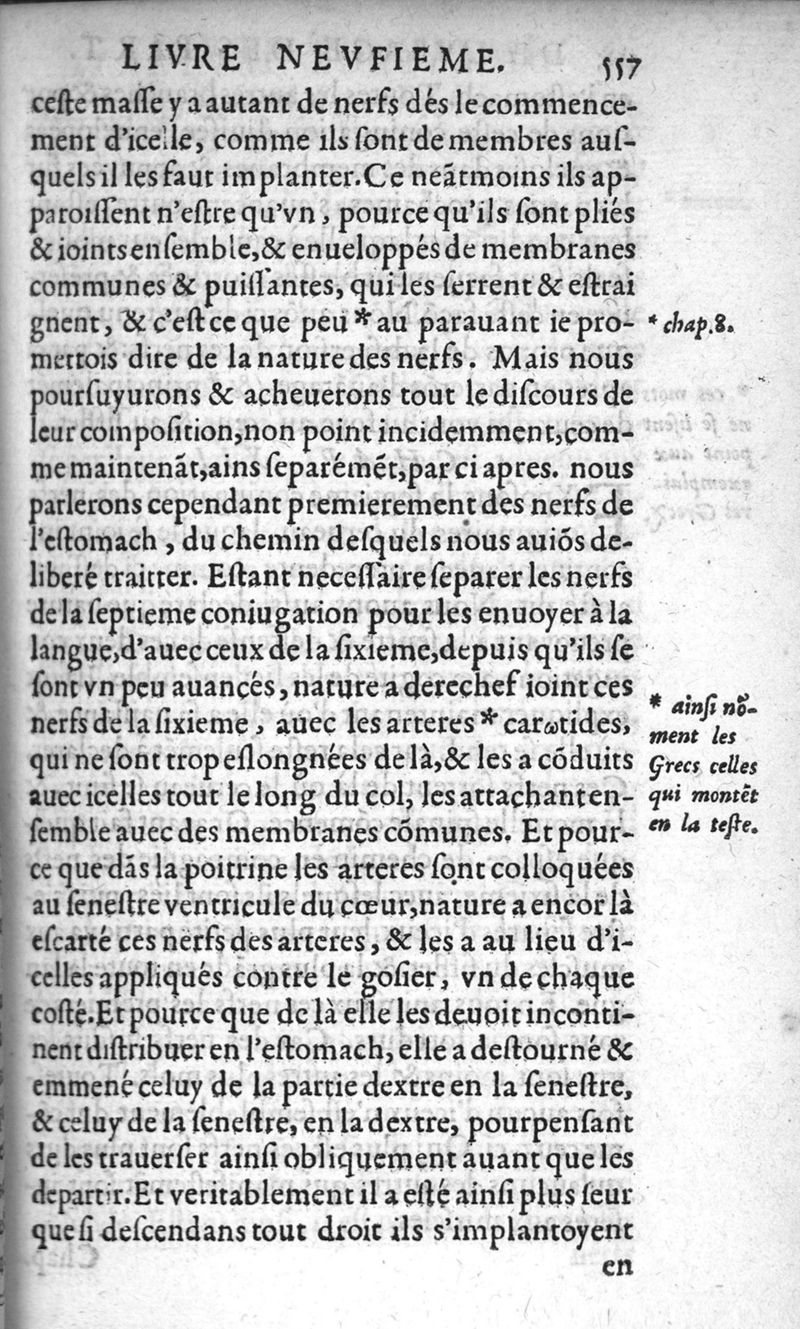 LIVRE NEVFIEME. 557
ceſte maſſe y a autant de nerfs dés le commence-
ment d'icelle, comme ils ſont de membres auſ-
quels il les faut implanter. Ce neātmoins ils ap-
paroiſſent n'eſtre qu'vn, pource qu'ils ſont pliés
& ioints enſemble, & enueloppés de membranes
communes & puiſſantes, qui les ſerrent & eſtrai
gnent, & c'eſt ce que peu * au parauant ie pro-
mettois dire de la nature des nerfs. Mais nous
pourſuyurons & acheuerons tout le diſcours de
leur compoſition, non point incidemment, com-
me maintenāt, ains ſeparémēt, par ci apres. nous
parlerons cependant premierement des nerfs de
l'eſtomach, du chemin deſquels nous auiōs de-
liberé traitter. Eſtant neceſſaire ſeparer les nerfs
de la ſeptieme coniugation pour les enuoyer à la
langue, d'auec ceux de la ſixieme, depuis qu'ils ſe
ſont vn peu auancés, nature a derechef ioint ces
nerfs de la ſixieme, auec les arteres * carωtides,
qui ne ſont trop eſlongnées de là, & les a cōduits
auec icelles tout le long du col, les attachant en-
ſemble auec des membranes cōmunes. Et pour-
ce que dās la poitrine les arteres ſont colloquées
au ſeneſtre ventricule du cœur, nature a encor là
eſcarté ces nerfs des arteres, & les a au lieu d'i-
celles appliqués contre le goſier, vn de chaque
coſté. Et pource que de là elle les deuoit inconti-
nent diſtribuer en l'eſtomach, elle a deſtourné &
emmené celuy de la partie dextre en la ſeneſtre,
& celuy de la ſeneſtre, en la dextre, pourpenſant
de les trauerſer ainſi obliquement auant que les
departir. Et veritablement il a eſté ainſi plus ſeur
que ſi deſcendans tout droit ils s'implantoyent
en
* chap. 8.
* ainſi nō-
ment les
Grecs celles
qui montēt
en la teſte.